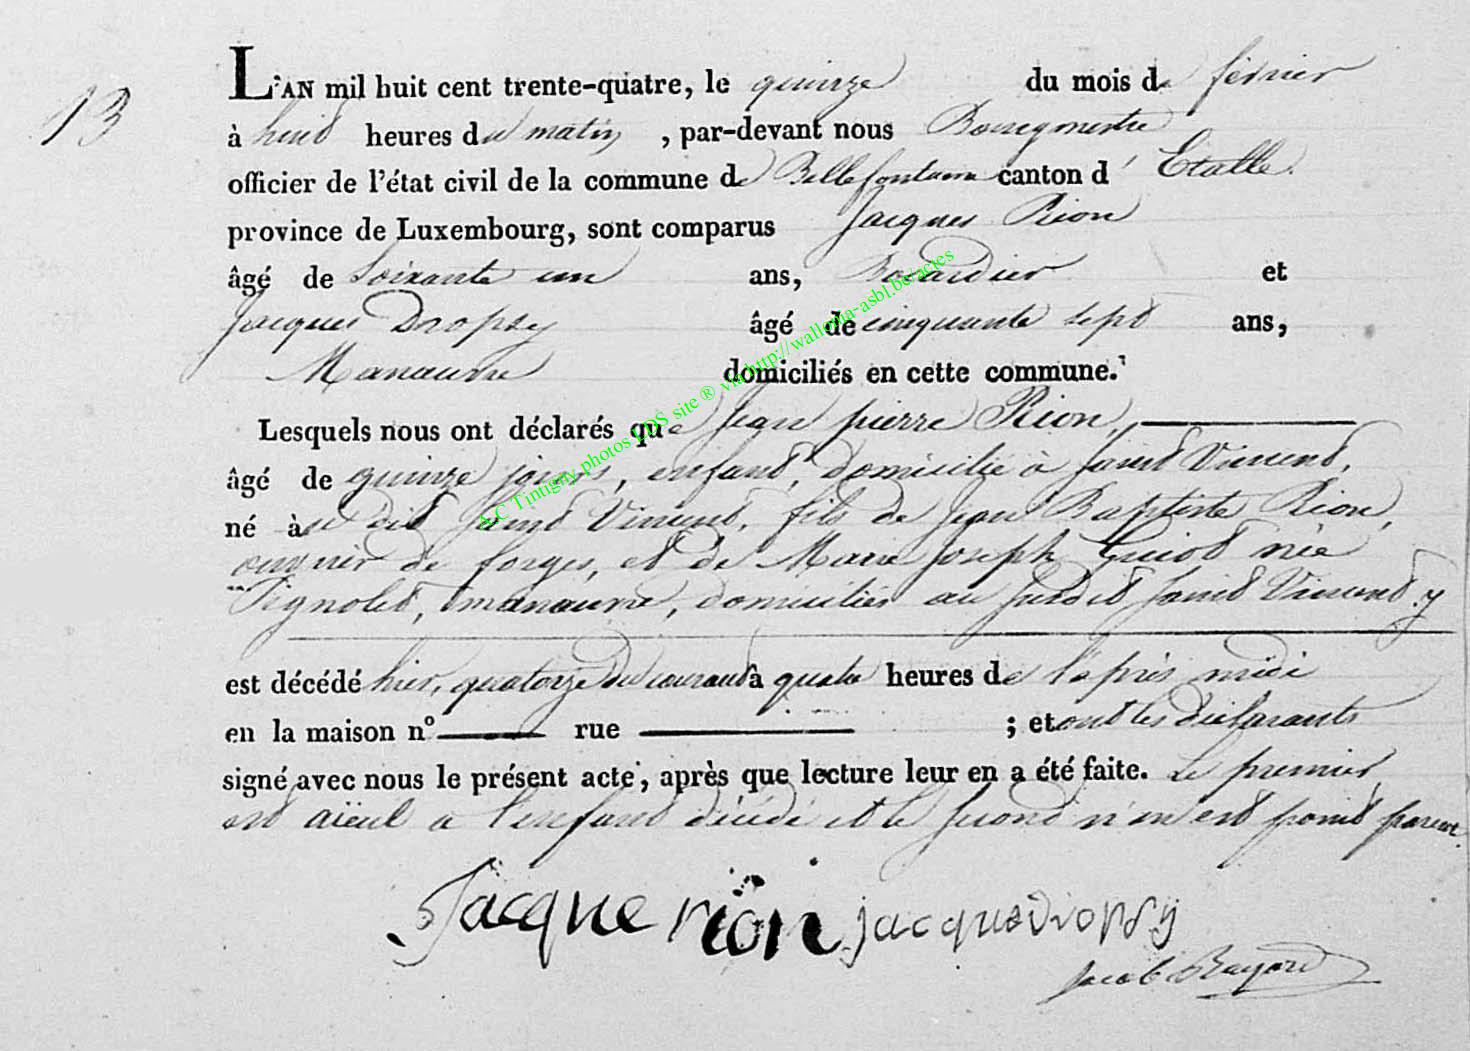 13
L'AN mil huit cent trente-quatre, le quinze du mois de février
à huit heures du matin, par-devant nous Bourgmestre
officier de l'état civil de la commune de Bellefontaine canton d'Etalle.
province de Luxembourg, sont comparus Jacques Rion
âgé de soixante un ans, Bocardier et
Jacques Dropsy âgé de cinquante sept ans,
Manœuvre domiciliés en cette commune.
Lesquels nous ont déclarés que Jean pierre Rion,
âgé de quinze jours, enfant, domicilié à Saint Vincent,
né à su dit Saint Vincent, fils de Jean Baptiste Rion,
ouvrier de forges, et de Marie Joseph Guiot née
Tignolet, manœuvre, domiciliés au susdit Saint Vincent. y
est décédé hier, quatorze du courant à quatre heures de l'après midi
en la maison n° rue ; et ont les déclarants
signé avec nous le présent acte, après que lecture leur en a été faite. Le premier
est aïeul a l'enfant décédé et le second n'en est point parent.
Jacque rion jacques Dropsy
Jacob Bayard
A-C Tintigny photos LDS site ® via http://wallonia-asbl.be/actes